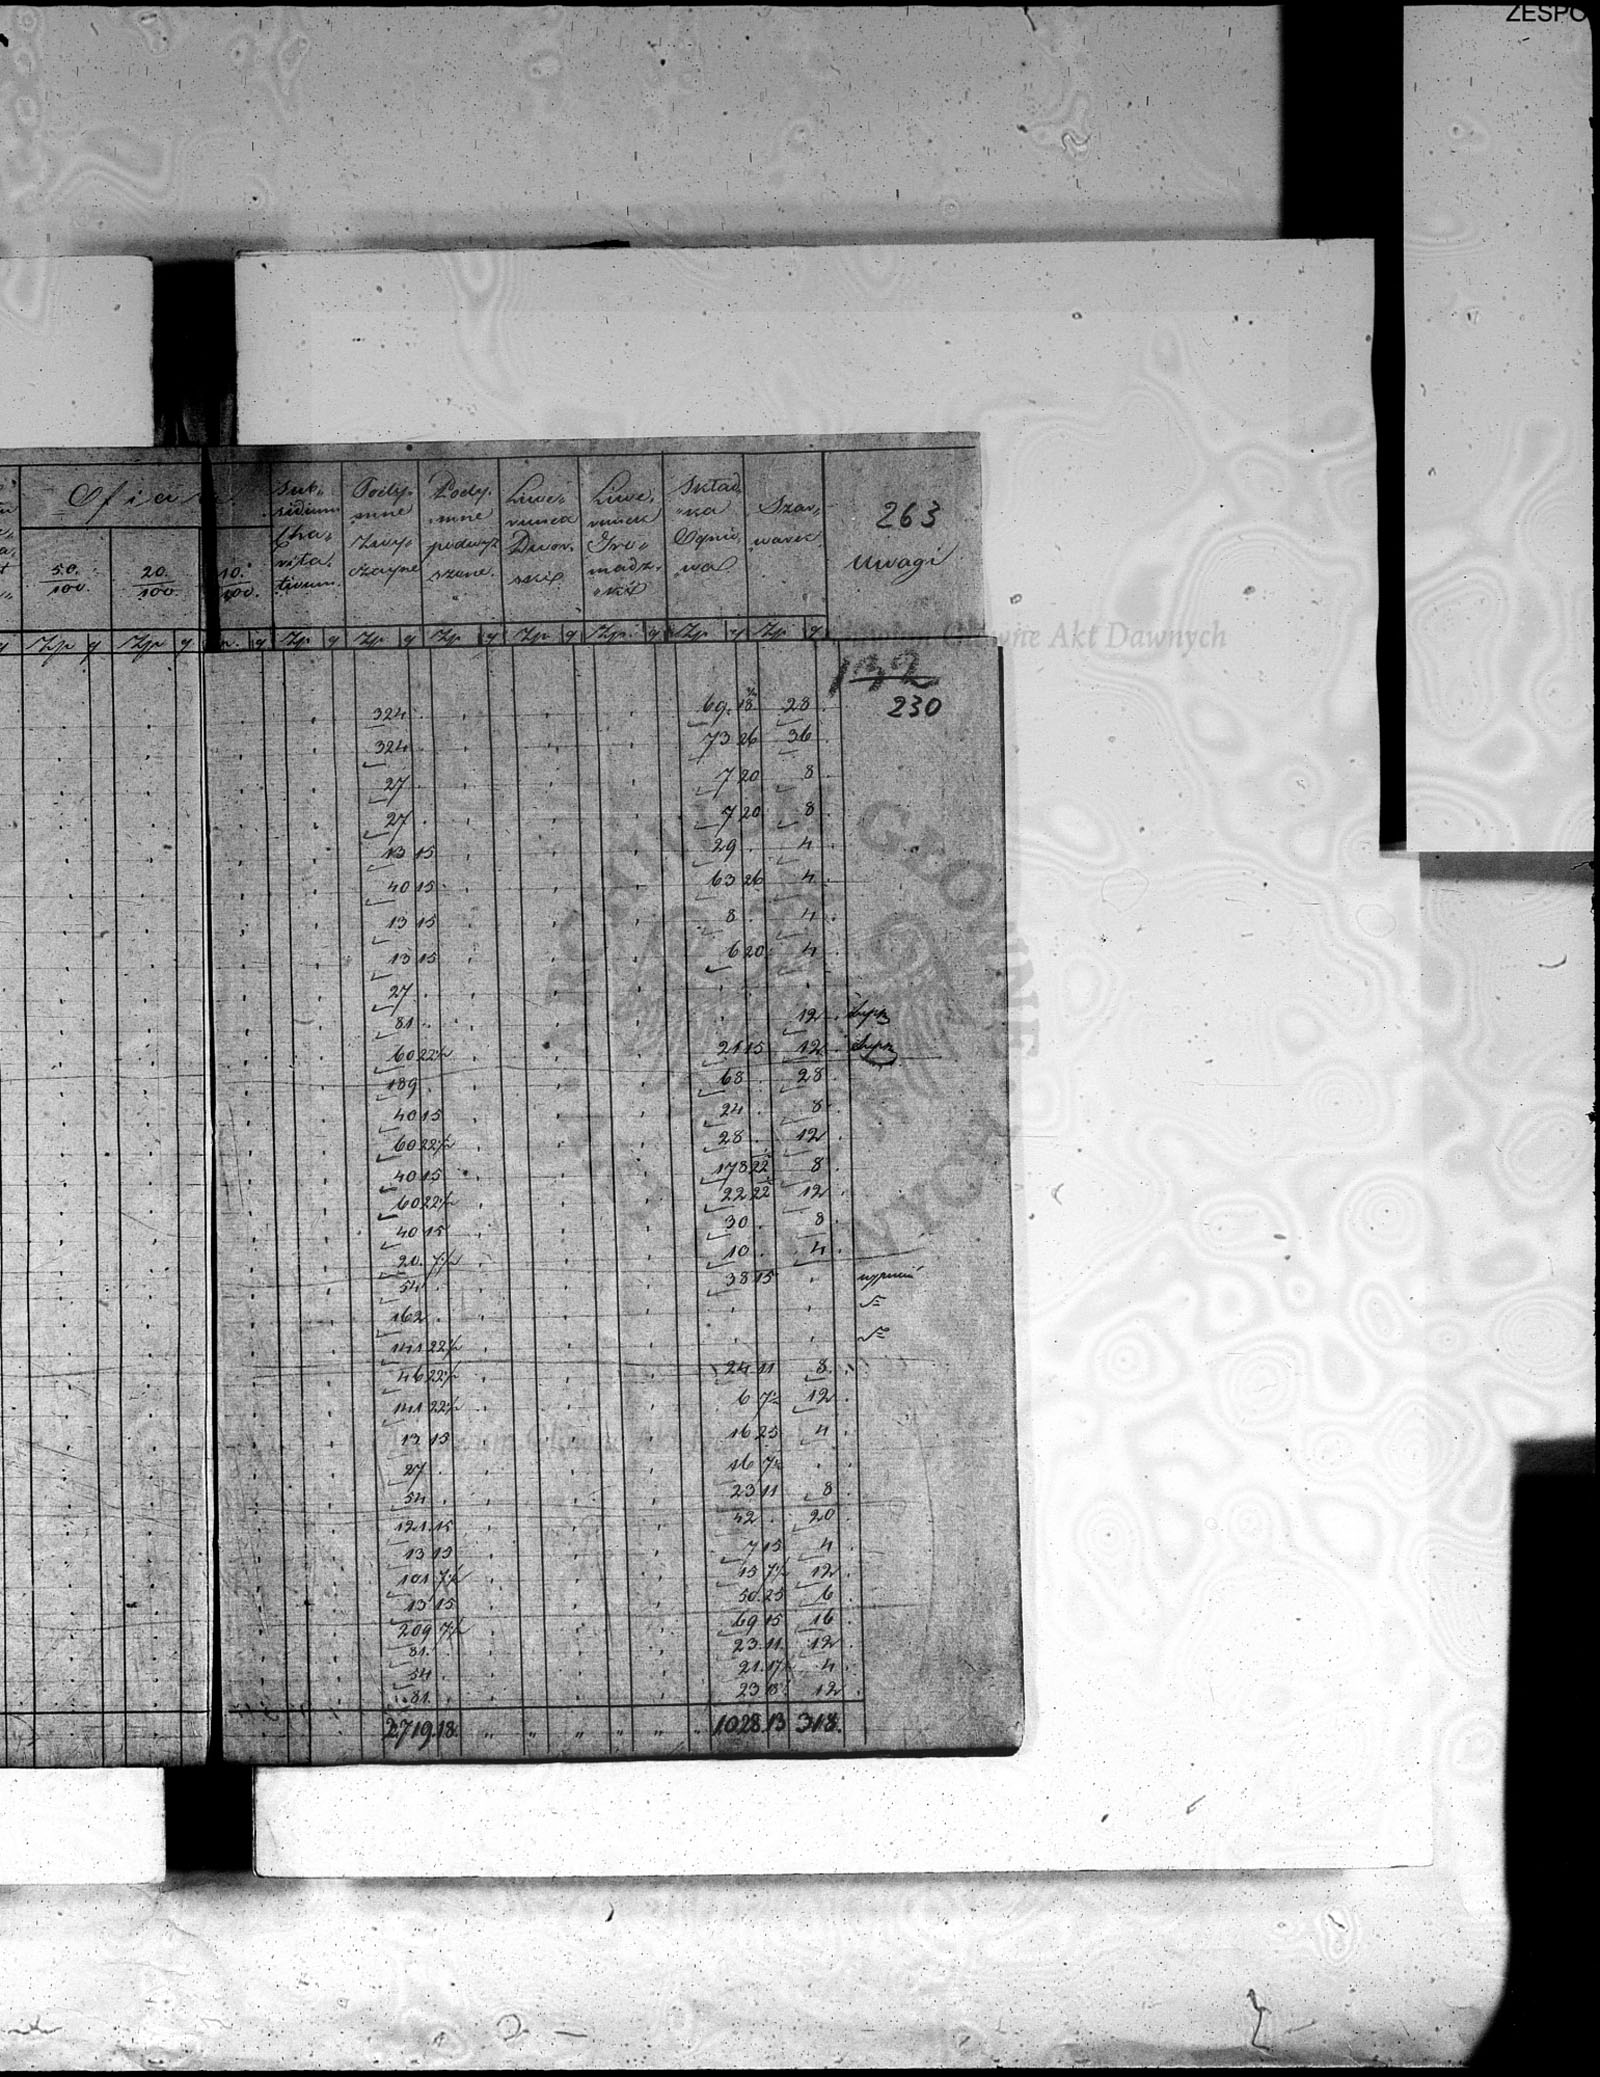 ZESPO
Ofiara.
50./100. 20./100. 10./100.
Subsidium Charitativum
Podymne Zwyczayne
Podymne podwyższone.
Liwerunek Dworski
Liwerunek Gromadzki
Składka Ogniowa
Szarwarek
263
Uwagi
Zp g Zp g Zp g Zp g Zp g Zp g Zp g Zp g Zp g
Główne Akt Dawnych
132
230
324 69. 18 28
324 73 26 36
27 7 20 8
27 7 20 8
13 15 29 4
40 15 63 26 4
13 15 8 4
13 15 6 20 4
27
81 12
60 22½ 21 15 12
189 68 28
40 15 24 8
60 22½ 28 12
40 15 178 22 8
60 22½ 22 22 12
40 15 30 8
20 7½ 10 4
54 38 15
162
141 22½
46 22½ 24 11 8
141 22½ 6 7½ 12
13 15 16 25 4
27 16 7½
54 23 11 8
121 15 42 20
13 15 7 15 4
101 7½ 15 7½ 12
13 15 50 25 6
209 7½ 69 15 16
81 23 11 12
54 21 17 4
81 23 18 12
2719. 18. " " " " " " 1028 13 318.
ARCHIWUM GŁÓWNE